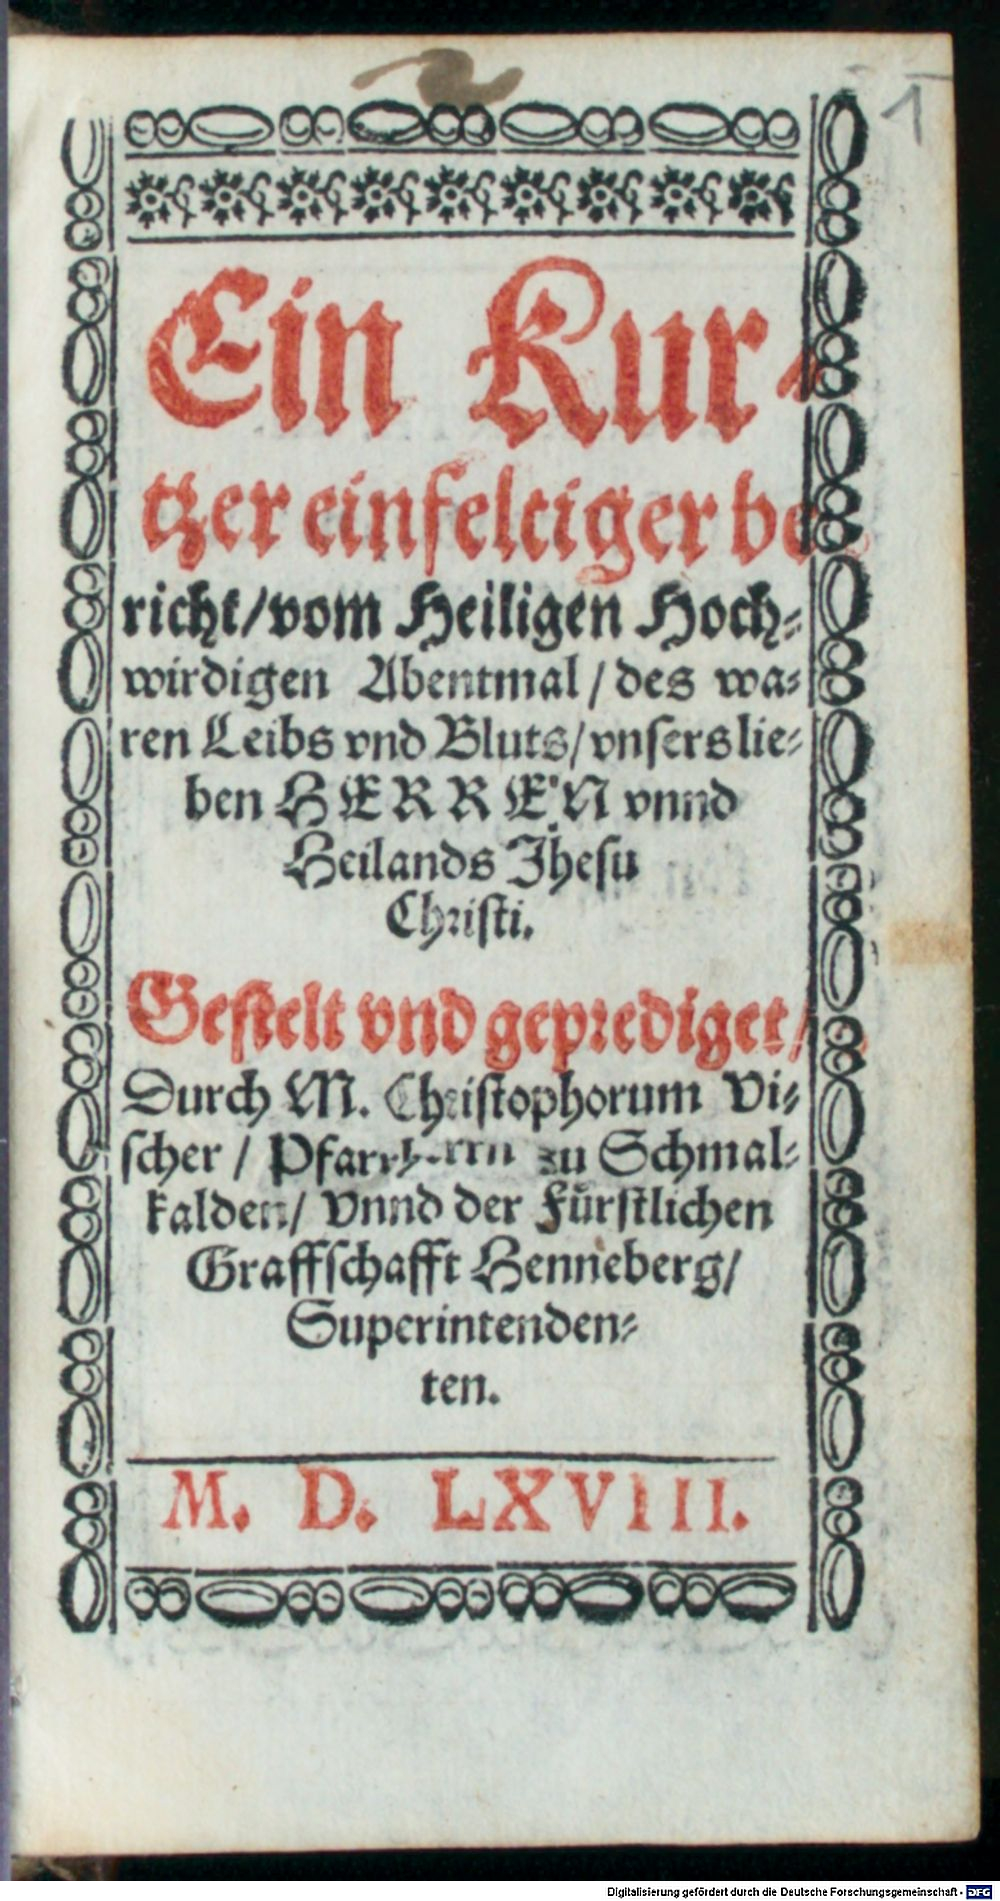 1
Ein Kur-
tzer einfeltiger be-
richt/vom Heiligen Hoch-
wirdigen Abentmal / des wa-
ren Leibs vnd Bluts/vnsers lie-
ben HERREN vnnd
Heilands Jhesu
Christi.
Gestelt vnd geprediget/
Durch M. Christophorum Vi-
scher / Pfarrherrn zu Schmal-
kalden/ Vnnd der Fürstlichen
Graffschafft Henneberg/
Superintenden-
ten.
M. D. LXVIII.
Digitalisierung gefördert durch die Deutsche Forschungsgemeinschaft - DFG